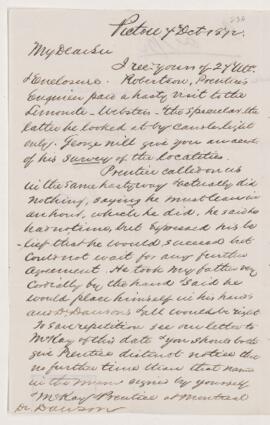 Pictou 7 Oct 1872.
My Dear Sir
I rec. yours of 27 Ult.
& Enclosure. Robertson, Prentice's
Engineer paid a hasty visit to the
Limonite - Websters - the Specular the
latter he looked at by candle light
only. George will give you an acct.
of his survey of the localities.
Prentice called on us
in the same hasty way & actually did
nothing, saying he must leave in
an hour, which he did, he said he
had no time, but expressed his be-
lief that he would succeed but
could not wait for any further
Agreement. He took my father very
cordially by the hand & said he
would place himself in his hands
and Dr. Dawson's & all would be right
To save repetition see our letter to
McKay of this date & you should both
give Prentice distinct notice that
no further time than that named
in the memo signed by yourself
McKay Prentice at Montreal
Dr. Dawson